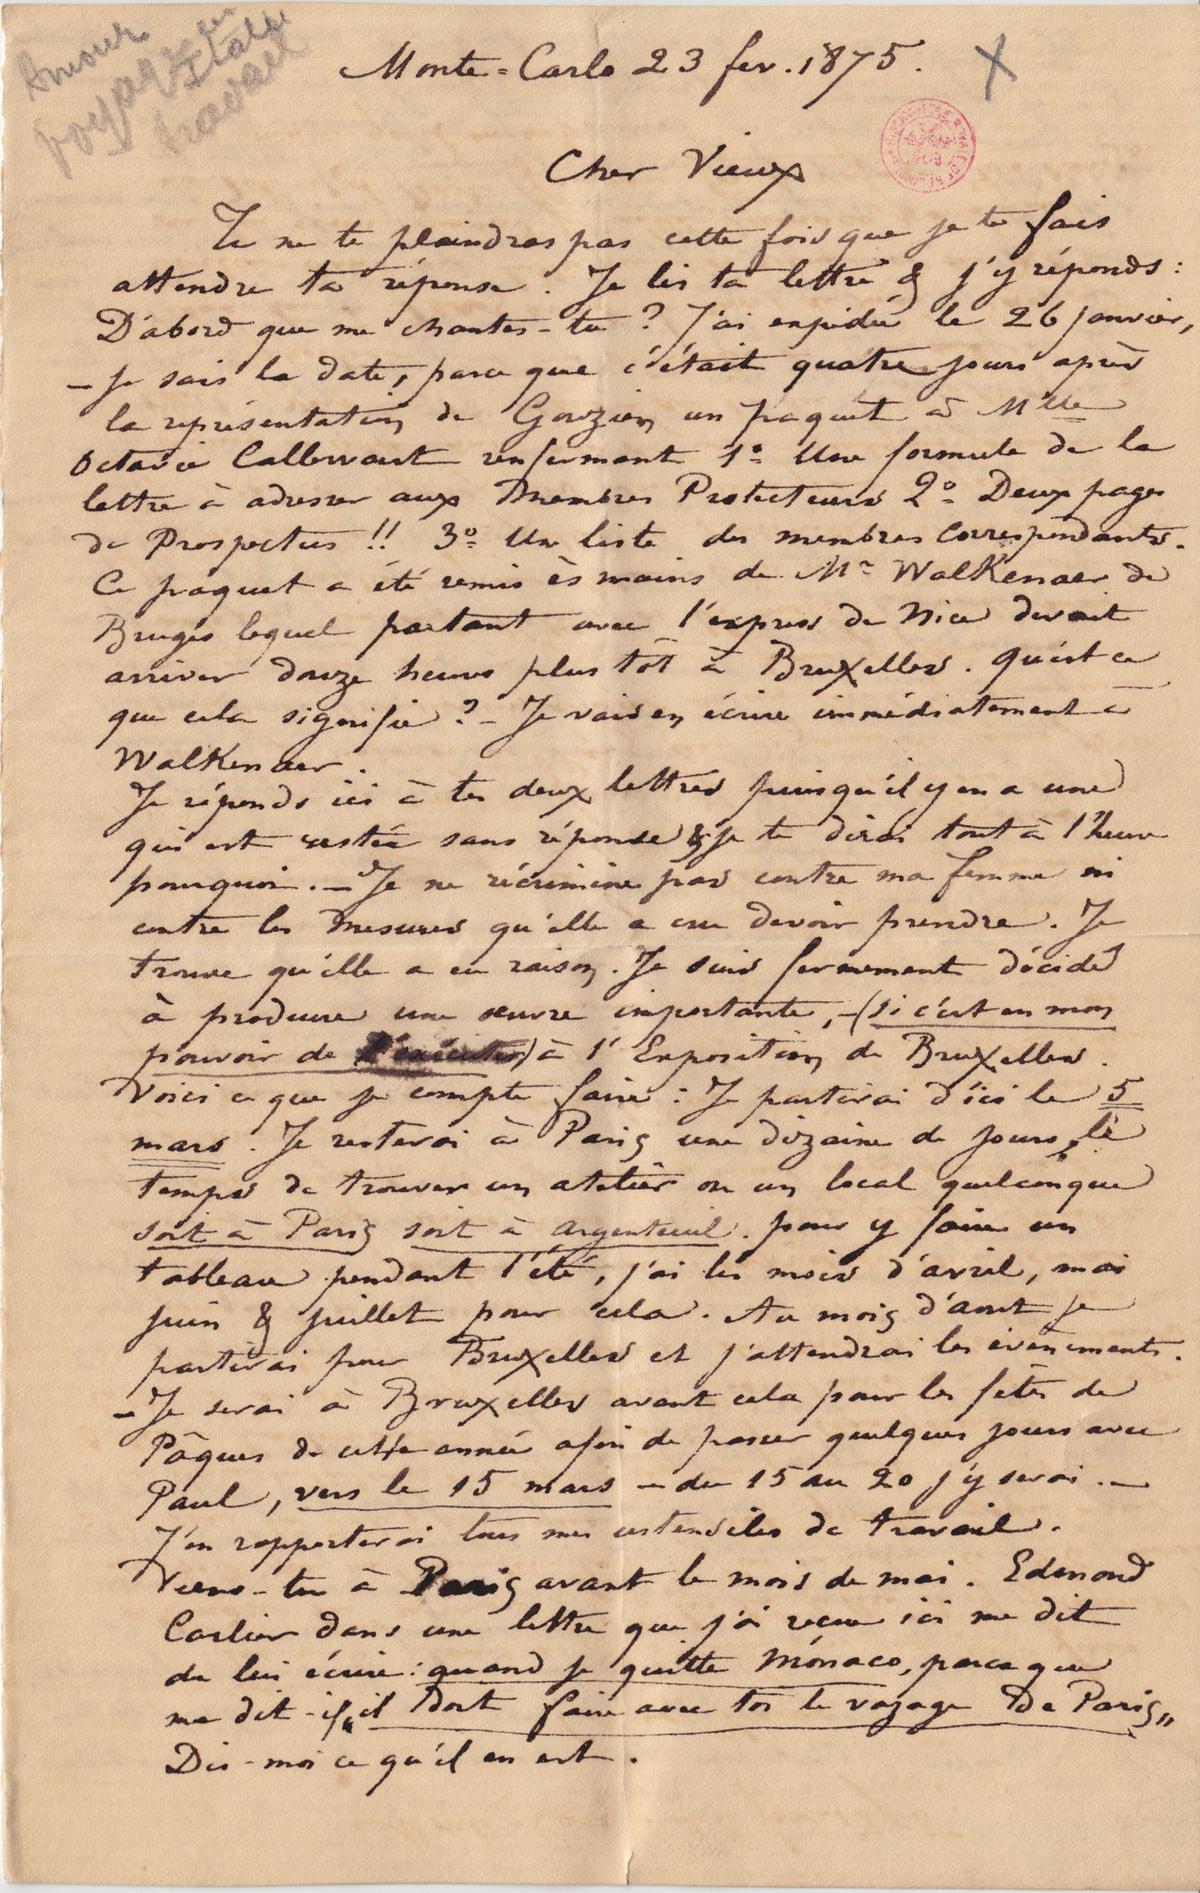 Amour
voyage en
Italie
travail
Monte-Carlo 23 fev. 1875.
Cher Vieux
Tu ne te plaindras pas cette fois que je te fais
attendre ta réponse. Je lis ta lettre & j'y réponds :
D'abord que me chantes-tu ? J'ai expédié le 26 janvier,
– je sais la date, parce que c'était quatre jours après
la représentation de Gouzien un paquet à Mlle
Octavie Callewaert renfermant 1º Une formule de la
lettre à adresser aux Membres Protecteurs 2º Deux pages
de Prospectus !! 3º Une liste des membres correspondants.
Ce paquet a été remis ès mains de Mr Walkenaer de
Bruges lequel partant avec l'express de Nice devait
arriver douze heures plus tôt à Bruxelles. Qu'est ce
que cela signifie ? – Je vais en écrire immédiatement à
Walkenaer.
Je réponds ici à tes deux lettres puisqu'il y en a une
qui est restée sans réponse & je te dirai tout à l'heure
pourquoi. – Je ne récrimine pas contre ma femme ni
contre les mesures qu'elle a cru devoir prendre. Je
trouve qu'elle a eu raison. Je suis fermement décidé
à produire une œuvre importante, – (si c'est en mon
pouvoir de l'exécuter) à l'Exposition de Bruxelles.
Voici ce que je compte faire : Je partirai d'ici le 5
mars. Je resterai à Paris une dizaine de jours, le
temps de trouver un atelier ou un local quelconque
soit à Paris soit à Argenteuil. pour y faire un
tableau pendant l'été, j'ai les mois d'avril, mai
juin & juillet pour cela. Au mois d'aout je
partirai pour Bruxelles et j'attendrai les évènements.
– Je serai à Bruxelles avant cela pour les fêtes de
Pâques de cette année afin de passer quelques jours avec
Paul, vers le 15 mars – du 15 au 20 j'y serai. –
J'en rapporterai tous mes ustensiles de travail.
Viens-tu à Paris avant le mois de mai. Edmond
Carlier dans une lettre que j'ai reçue ici me dit
de lui écrire : quand je quitte Mónaco, parce que
me dit-il, „il doit faire avec toi le voyage De Paris„
Dis-moi ce qu'il en est.